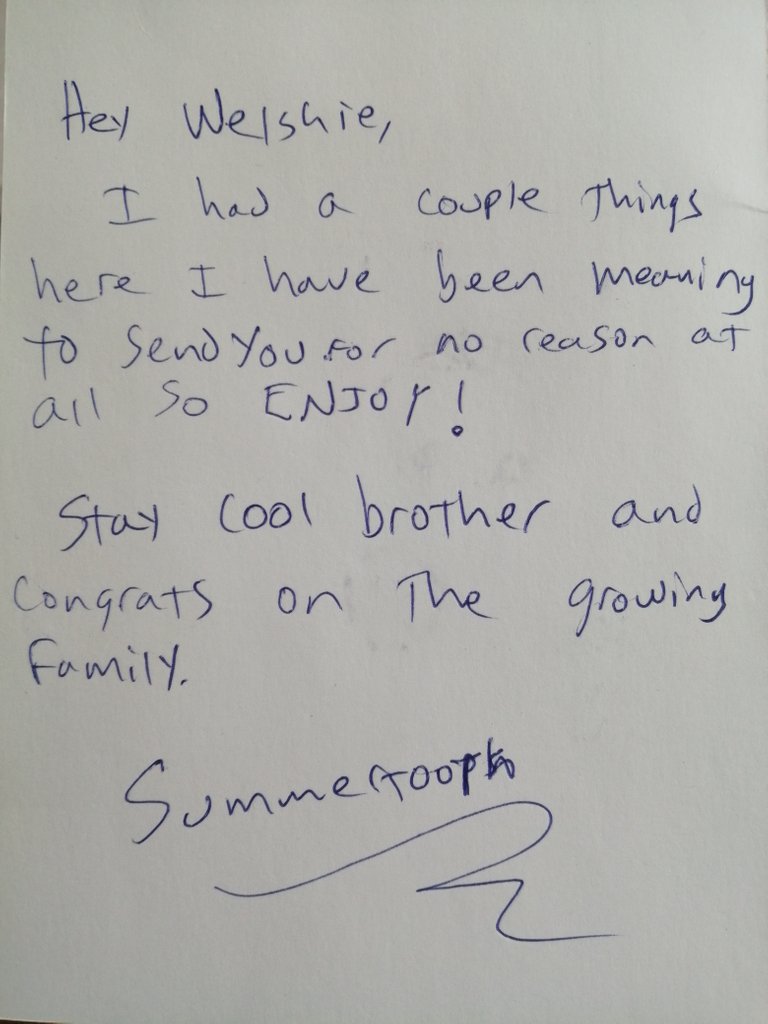 Hey Welshie,
I had a couple things
here I have been meaning
to send you for no reason at
all so ENJOY!
Stay cool brother and
congrats on the growing
family.
Summertooth